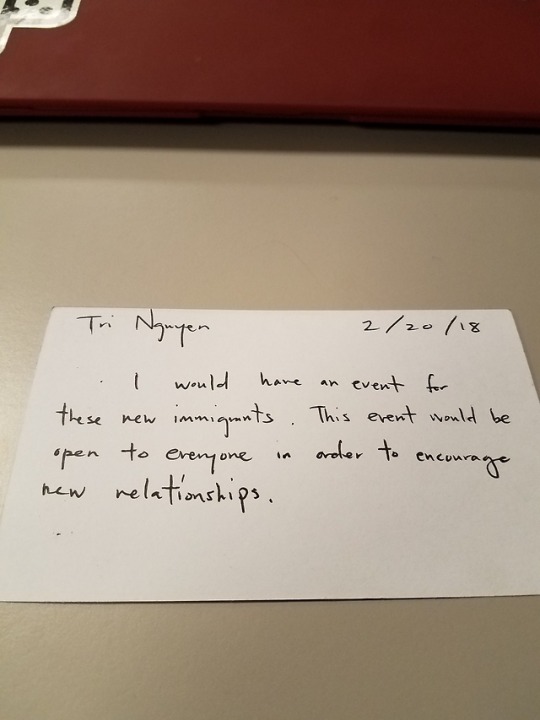 Tri Nguyen 2/20/18
I would have an event for
these new immigrants. This event would be
open to everyone in order to encourage
new relationships.